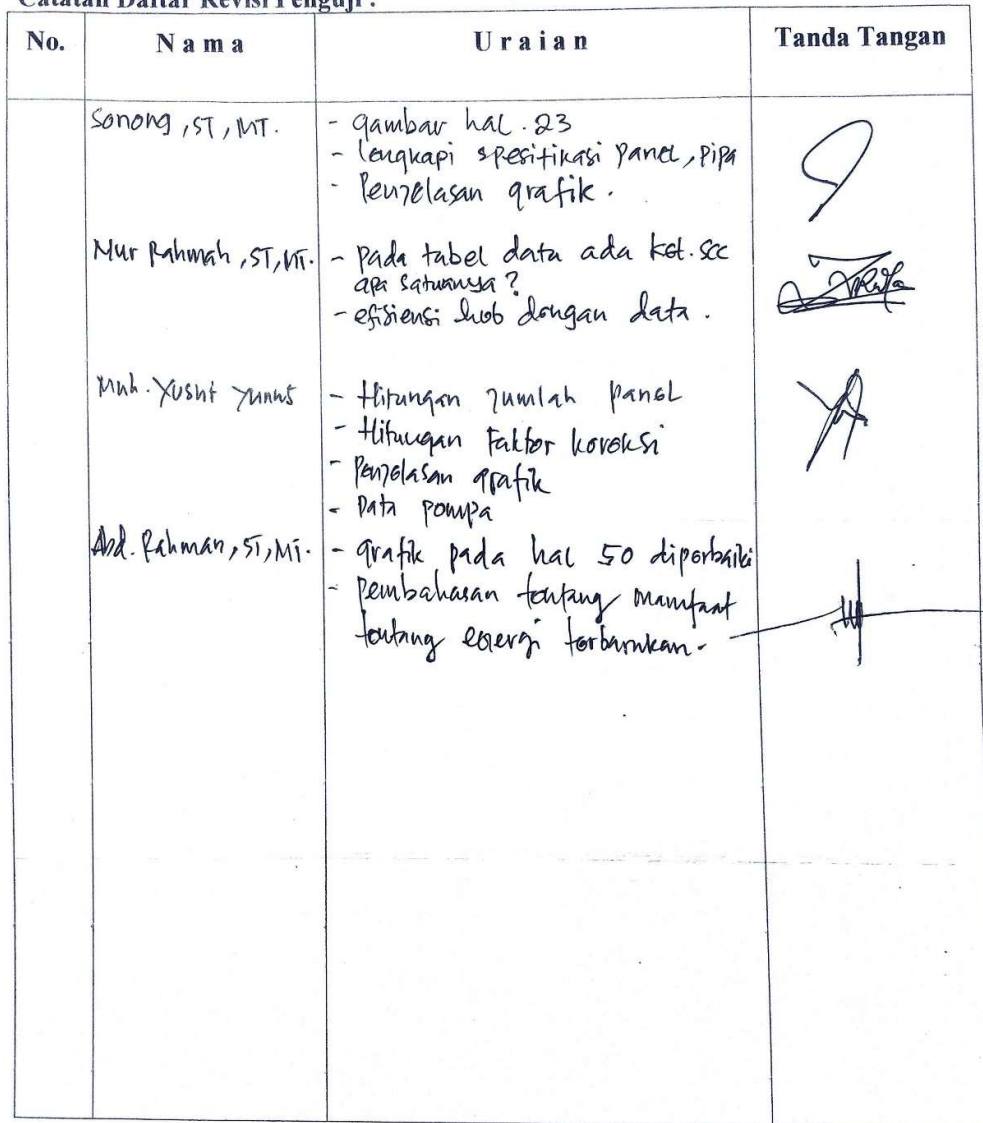 Catatan Daftar Revisi Penguji :
No. Nama Uraian Tanda Tangan
Sonong, ST, MT. - gambar hal. 23
- lengkapi spesifikasi panel, pipa
- Penjelasan grafik.
Nur Rahmah, ST, MT. - pada tabel data ada ket. scc
apa satuanya?
- efisiensi hub dengan data.
Muh. Yusuf Yunus - Hitungan jumlah panel
- Hitungan Faktor koreksi
- Penjelasan grafik
- Data pompa
Abd. Rahman, ST, MT. - grafik pada hal 50 diperbaiki
- Pembahasan tentang manfaat
tentang energi terbarukan.